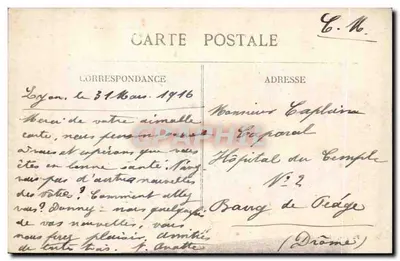 C. M.
CARTE POSTALE
CORRESPONDANCE
ADRESSE
Lyon, le 31 Mars 1916
Merci de votre aimable
carte, nous pensons
à vous et espérons que vous
êtes en bonne santé.
vous pas d'autres nouvelles
des vôtres? Comment allez
vous? Donnez-nous quelques
de vos nouvelles, vous
nous ferez plaisir, amitiés
de
Monsieur Caplain
Caporal
Hôpital du Temple
No 2
Bourg de Péage
(Drôme)